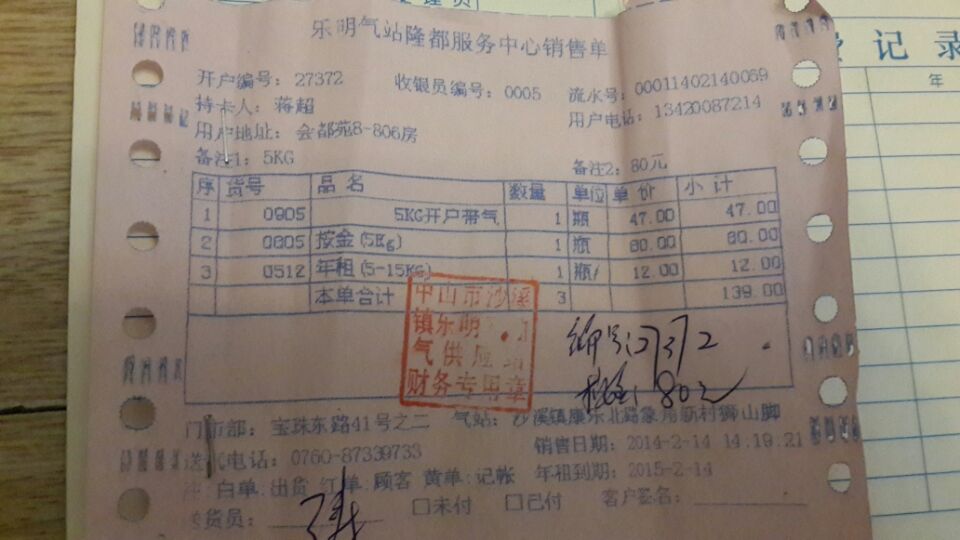 乐明气站隆都服务中心销售单
开户编号: 27372 收银员编号: 0005 流水号: 00011402140069
持卡人: 蒋超 用户电话: 13420087214
用户地址: 会都苑8-806房
备注1: 5KG 备注2: 80元
序 货号 品名 数量 单位 单价 小计
1 0905 5KG开户带气 1 瓶 47.00 47.00
2 0805 按金(5Kg) 1 瓶 80.00 80.00
3 0512 年租(5-15KG) 1 瓶 12.00 12.00
本单合计 3 139.00
中山市沙溪
镇乐明
气供应站
财务专用章
编号:27372
按金:80元
门市部: 宝珠东路41号之二 气站: 沙溪镇康乐北路象角新村狮山脚
送气电话: 0760-87339733 销售日期: 2014-2-14 14:19:21
白单:出货 红单:顾客 黄单:记帐 年租到期: 2015-2-14
货员: 口未付 口已付 客户签名:
记录
年